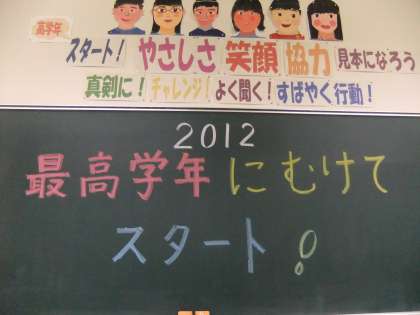 高学年
スタート! やさしさ 笑顔 協力 見本になろう
真剣に! チャレンジ! よく聞く! すばやく行動!
2012
最高学年にむけて
スタート!